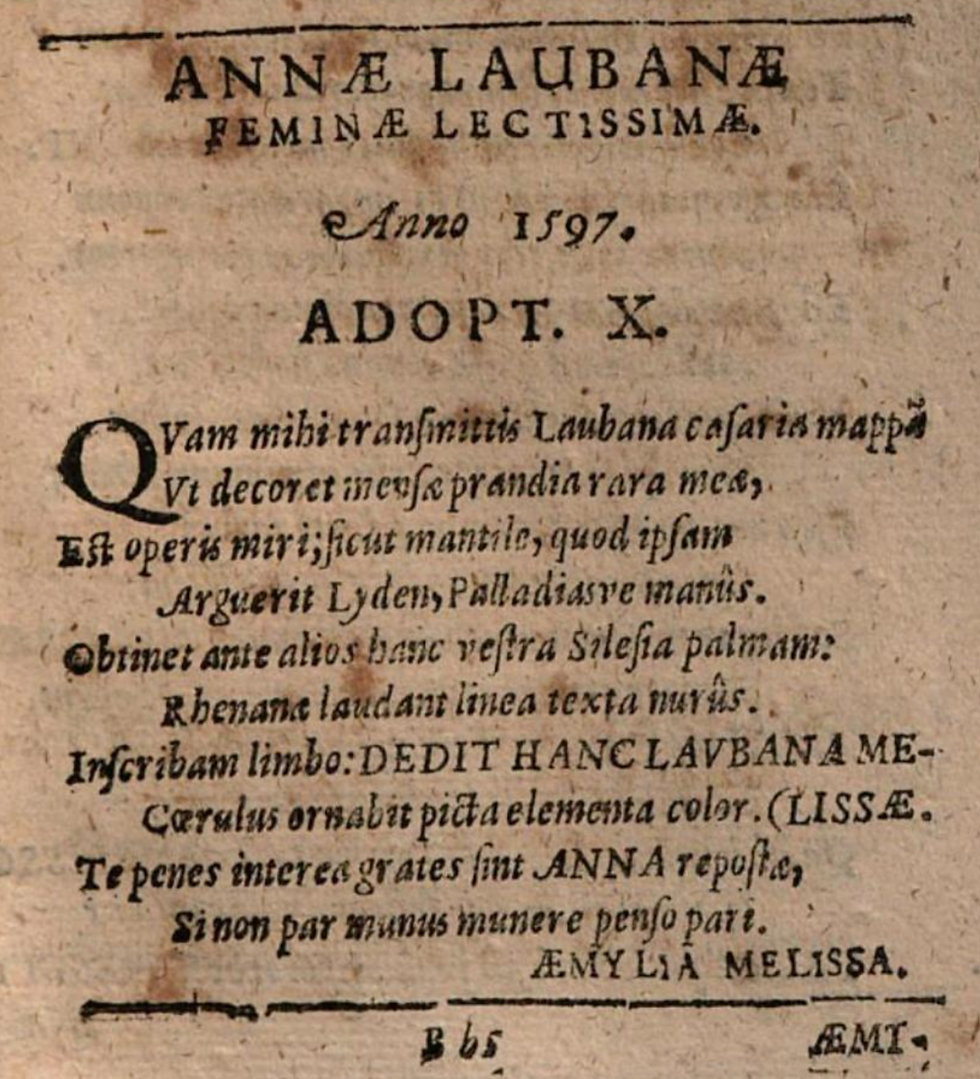 ANNÆ LAUBANÆ
FEMINÆ LECTISSIMÆ.
Anno 1597.
ADOPT. X.
QVam mihi tranſmittis Laubana caſaria mappã
Vt decoret menſæ prandia rara meæ,
Eſt operis miri; ſicut mantile, quod ipſam
Arguerit Lyden, Palladiasve manûs.
Obtinet ante alios hanc veſtra Sileſia palmam:
Rhenanæ laudant linea texta nurûs.
Inſcribam limbo: DEDIT HANC LAVBANA ME-
Cœrulus ornabit picta elementa color. (LISSÆ.
Te penes interea grates ſint ANNA repoſtæ,
Si non par munus munere penſo pari.
ÆMYLIA MELISSA.
B b5
ÆMY-